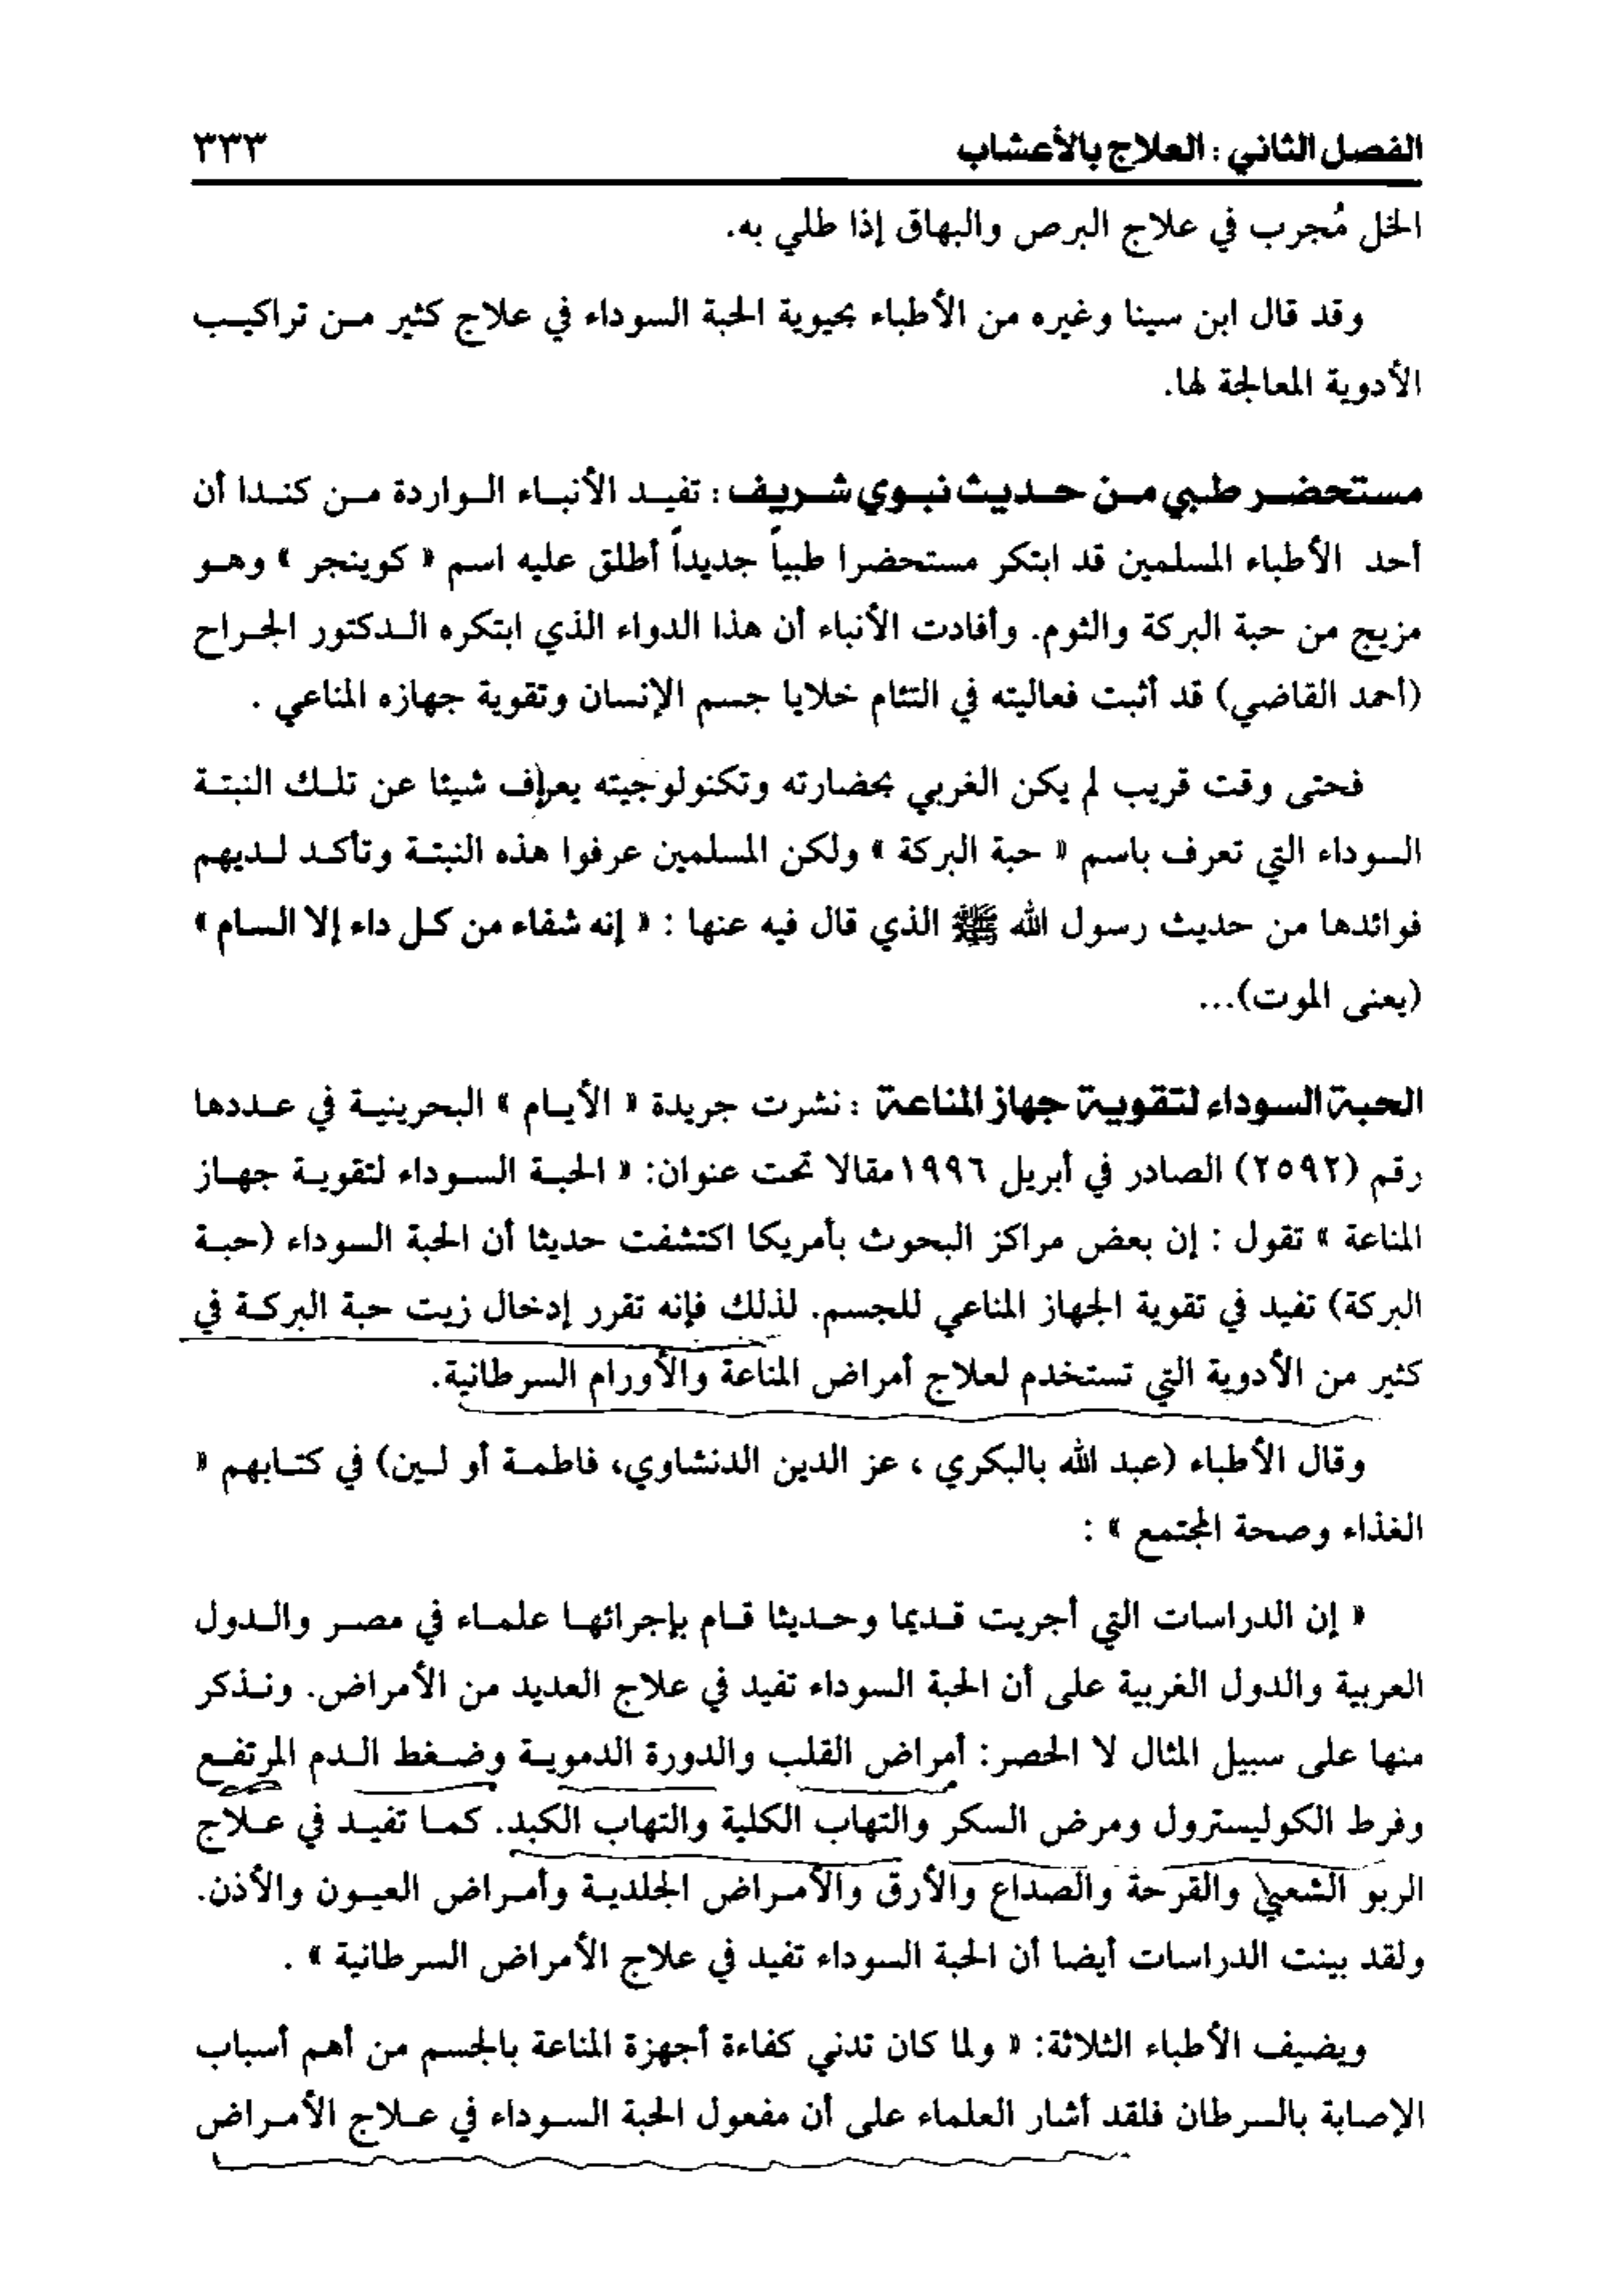 الفصل الثاني : العلاج بالأعشاب ٣٣٣
الخل مُجرب في علاج البرص والبهاق إذا طلي به.
وقد قال ابن سينا وغيره من الأطباء بحيوية الحبة السوداء في علاج كثير من تراكيب
الأدوية المعالجة لها.
مستحضر طبي من حديث نبوي شريف : تفيد الأنباء الواردة من كندا أن
أحد الأطباء المسلمين قد ابتكر مستحضرا طبياً جديداً أطلق عليه اسم « كوينجر » وهو
مزيج من حبة البركة والثوم. وأفادت الأنباء أن هذا الدواء الذي ابتكره الدكتور الجراح
(أحمد القاضي) قد أثبت فعاليته في التئام خلايا جسم الإنسان وتقوية جهازه المناعي .
فحتى وقت قريب لم يكن الغربي بحضارته وتكنولوجيته يعرف شيئا عن تلك النبتة
السوداء التي تعرف باسم « حبة البركة » ولكن المسلمين عرفوا هذه النبتة وتأكد لديهم
فوائدها من حديث رسول الله ﷺ الذي قال فيه عنها : « إنه شفاء من كل داء إلا السام »
(يعنى الموت)...
الحبة السوداء لتقوية جهاز المناعة : نشرت جريدة « الأيام » البحرينية في عددها
رقم (٢٥٩٢) الصادر في أبريل ١٩٩٦مقالا تحت عنوان: « الحبة السوداء لتقوية جهاز
المناعة » تقول : إن بعض مراكز البحوث بأمريكا اكتشفت حديثا أن الحبة السوداء (حبة
البركة) تفيد في تقوية الجهاز المناعي للجسم. لذلك فإنه تقرر إدخال زيت حبة البركة في
كثير من الأدوية التي تستخدم لعلاج أمراض المناعة والأورام السرطانية.
وقال الأطباء (عبد الله بالبكري ، عز الدين الدنشاوي، فاطمة أو لين) في كتابهم «
الغذاء وصحة المجتمع » :
« إن الدراسات التي أجريت قديما وحديثا قام بإجرائها علماء في مصر والدول
العربية والدول الغربية على أن الحبة السوداء تفيد في علاج العديد من الأمراض. ونذكر
منها على سبيل المثال لا الحصر: أمراض القلب والدورة الدموية وضغط الدم المرتفع
وفرط الكوليسترول ومرض السكر والتهاب الكلية والتهاب الكبد. كما تفيد في علاج
الربو الشعبي والقرحة والصداع والأرق والأمراض الجلدية وأمراض العيون والأذن.
ولقد بينت الدراسات أيضا أن الحبة السوداء تفيد في علاج الأمراض السرطانية » .
ويضيف الأطباء الثلاثة: « ولما كان تدني كفاءة أجهزة المناعة بالجسم من أهم أسباب
الإصابة بالسرطان فلقد أشار العلماء على أن مفعول الحبة السوداء في علاج الأمراض